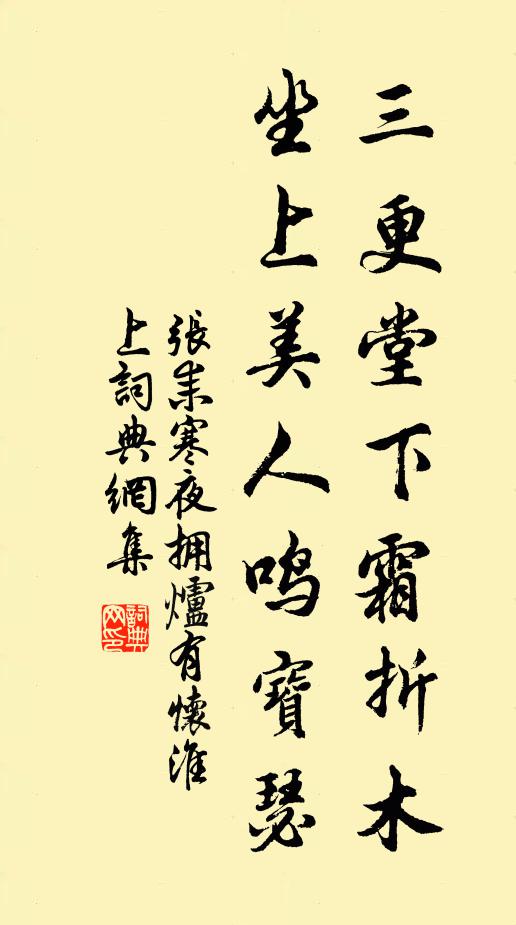 三更堂下霜折木
坐上美人鸣寶瑟
張耒寒夜拥爐有懷淮
上詞典網集
詞典
网印